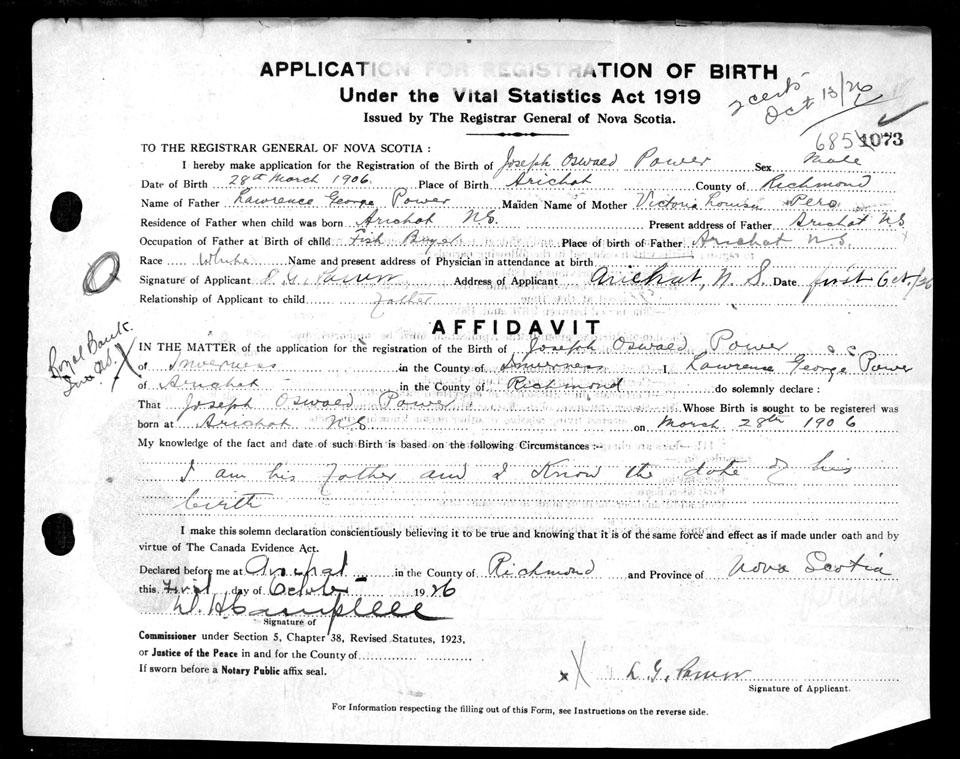 APPLICATION FOR REGISTRATION OF BIRTH
Under the Vital Statistics Act 1919
Issued by The Registrar General of Nova Scotia.
2 certs
Oct 13/26
685
1073
TO THE REGISTRAR GENERAL OF NOVA SCOTIA:
I hereby make application for the Registration of the Birth of Joseph Oswald Power Sex Male
Date of Birth 28th March 1906. Place of Birth Arichat County of Richmond
Name of Father Lawrence George Power Maiden Name of Mother Victoria Louisa
Residence of Father when child was born Arichat NS. Present address of Father Arichat N.S.
Occupation of Father at Birth of child Fish Place of birth of Father Arichat N.S.
Race White Name and present address of Physician in attendance at birth
Signature of Applicant L. G. Power Address of Applicant Arichat, N. S. Date first Oct/26
Relationship of Applicant to child father
Royal Bank
X
AFFIDAVIT
IN THE MATTER of the application for the registration of the Birth of Joseph Oswald Power
of Inverness in the County of Inverness I, Lawrence George Power
of Arichat in the County of Richmond do solemnly declare:
That Joseph Oswald Power Whose Birth is sought to be registered was
born at Arichat N.S. on March 28th 1906
My knowledge of the fact and date of such Birth is based on the following Circumstances:-
I am his father and I know the date of his
birth
I make this solemn declaration conscientiously believing it to be true and knowing that it is of the same force and effect as if made under oath and by
virtue of The Canada Evidence Act.
Declared before me at Arichat in the County of Richmond and Province of Nova Scotia
this First day of October 1926
Signature of
Commissioner under Section 5, Chapter 38, Revised Statutes, 1923,
or Justice of the Peace in and for the County of
If sworn before a Notary Public affix seal.
x X L. G. Power
Signature of Applicant.
For Information respecting the filling out of this Form, see Instructions on the reverse side.